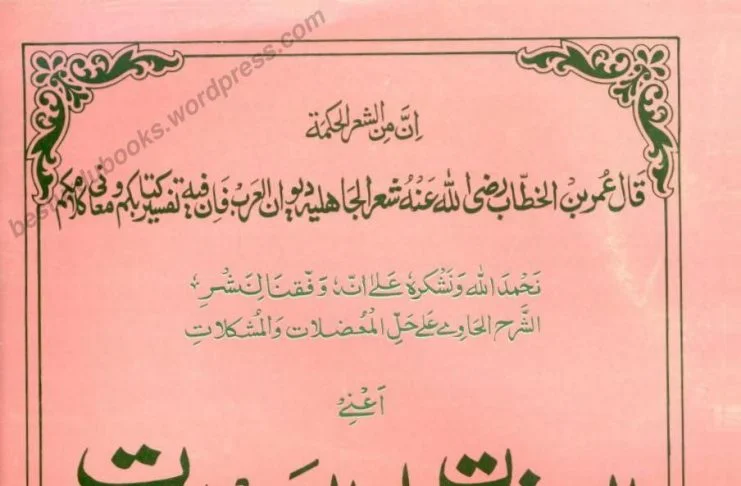 besturdubooks.wordpress.com
اِنَّ مِنَ الشعر لحكمة
قَالَ عُمر بن الخطّاب رضى الله عَنْهُ شعر الجاهلية ديوان العرب فَاِن فيه تفسير كتابكم ومعانى كلامكم
نَحْمدَ الله وَنَشْكرهٗ عَلےٰ انّهٗ وَفّقنا لِنشْرِ
الشَّرح الحاوے عَلےٰ حَلِّ المُعْضلات وَالمُشكلاتِ
اَعْنِےْ